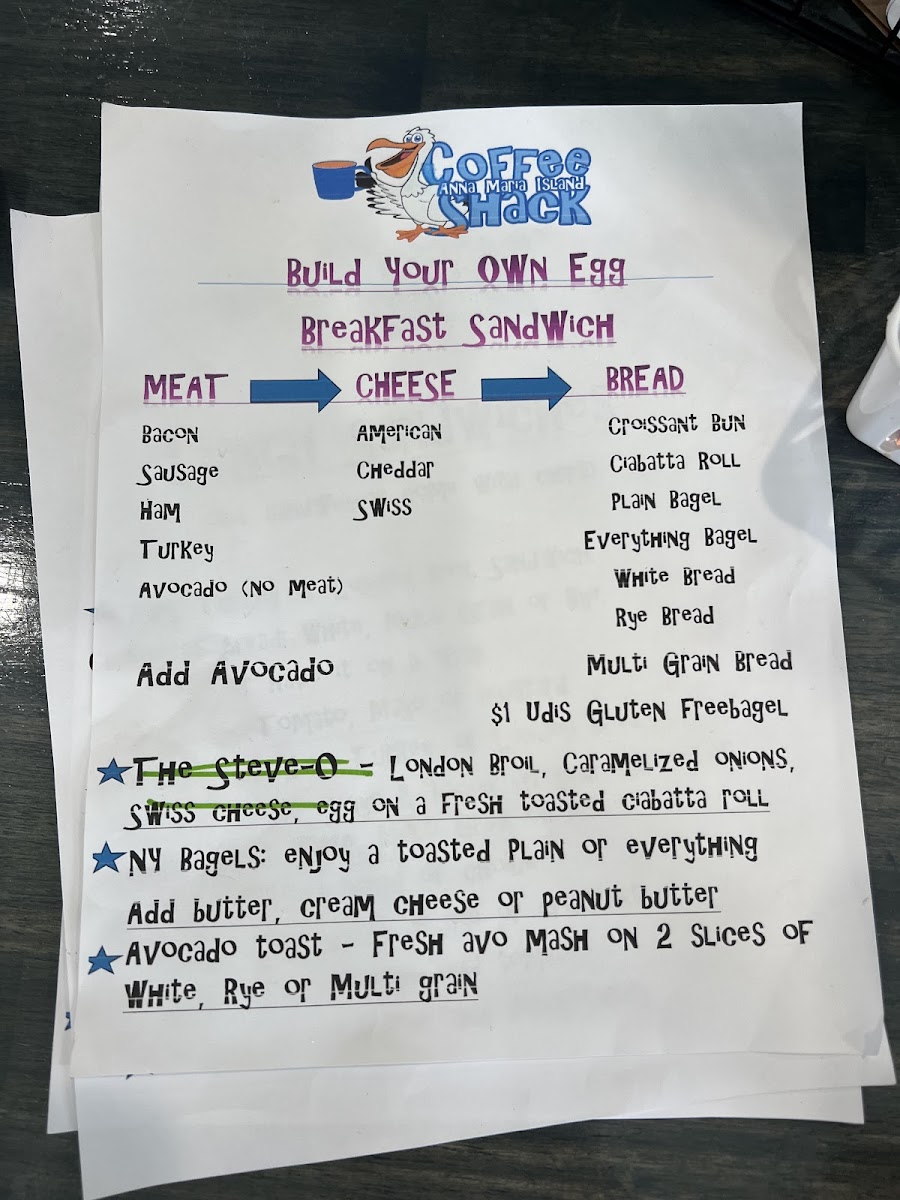 Coffee
Anna Maria Island
Shack
Build Your Own Egg
Breakfast Sandwich
MEAT CHEESE BREAD
Bacon American Croissant Bun
Sausage Cheddar Ciabatta Roll
Ham Swiss Plain Bagel
Turkey Everything Bagel
Avocado (No Meat) White Bread
Rye Bread
Add Avocado Multi Grain Bread
$1 Udis Gluten Freebagel
The Steve-O - London Broil, Caramelized onions,
Swiss cheese, egg on a fresh toasted ciabatta roll
NY Bagels: enjoy a toasted Plain or everything
Add butter, cream cheese or peanut butter
Avocado toast - Fresh avo mash on 2 slices of
White, Rye or Multi grain